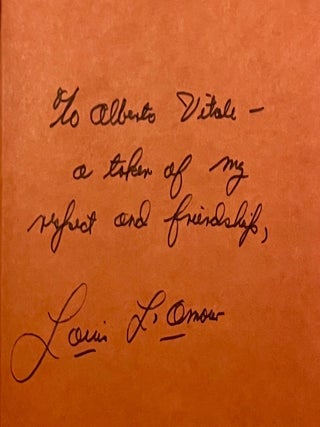 To Alberto Vitale —
a token of my
respect and friendship,
Louis L'Amour